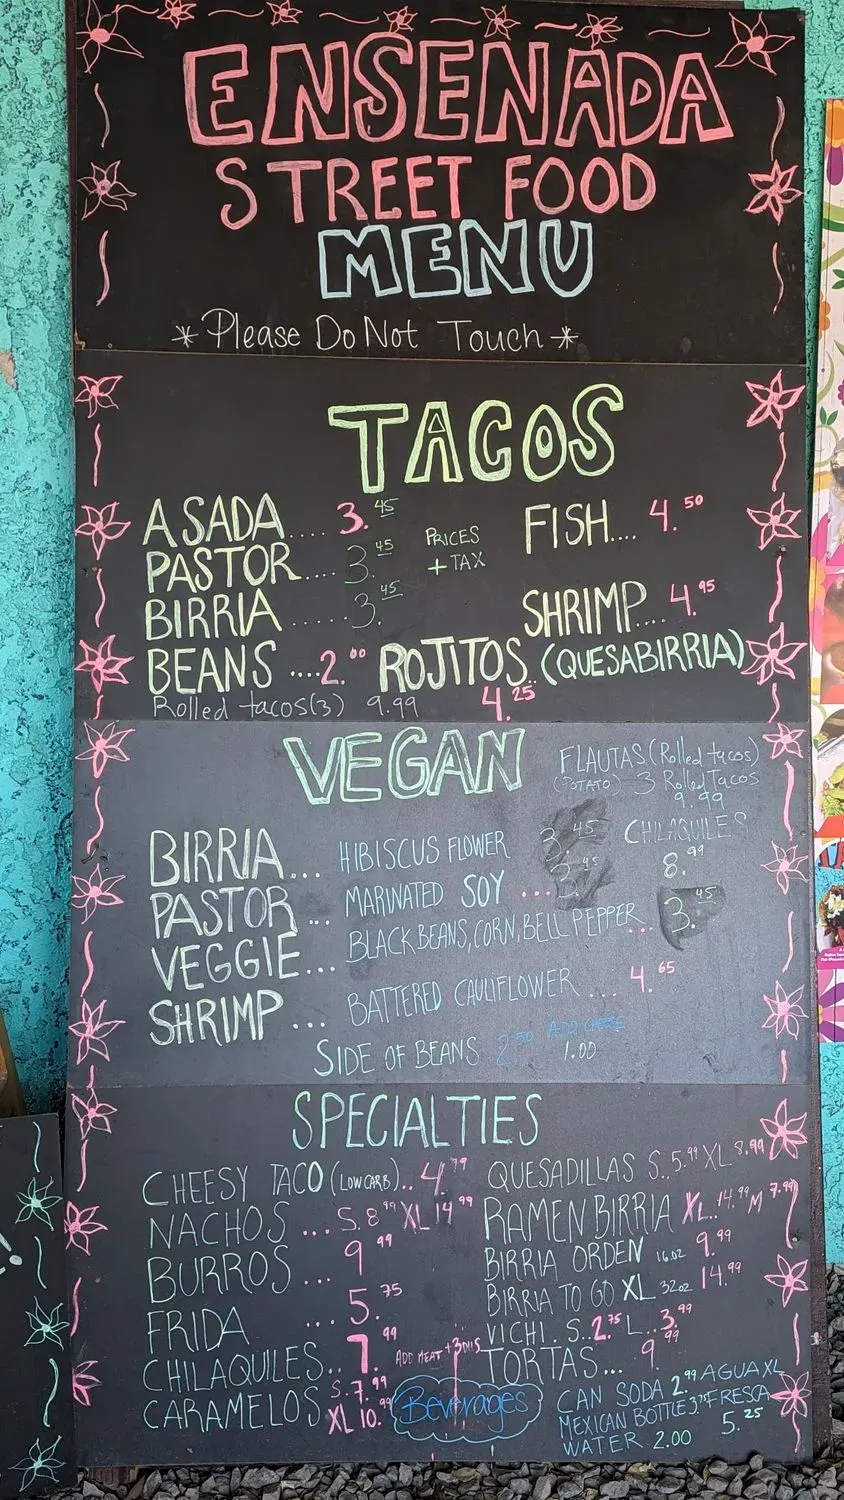 ENSENADA
STREET FOOD
MENU
*Please Do Not Touch*
TACOS
ASADA.... 3.45
PASTOR.... 3.45
BIRRIA...... 3.45
BEANS ....2.00
Rolled tacos(3) 9.99
PRICES
+ TAX
FISH.... 4.50
SHRIMP.... 4.95
ROJITOS.. (QUESABIRRIA)
4.25
VEGAN
FLAUTAS (Rolled tacos)
(POTATO) 3 Rolled Tacos
9.99
CHILAQUILES
8.99
BIRRIA... HIBISCUS FLOWER 3.45
PASTOR... MARINATED SOY ... 3.45
VEGGIE... BLACK BEANS, CORN, BELL PEPPER... 3.45
SHRIMP... BATTERED CAULIFLOWER ... 4.65
SIDE OF BEANS 2.50 ADD CHEESE
1.00
SPECIALTIES
CHEESY TACO (LOW CARB).. 4.79
NACHOS ... S. 8.99 XL 14.99
BURROS ... 9.99
FRIDA ... 5.75
CHILAQUILES.. 7.99 ADD MEAT +3
CARAMELOS S.7.99
XL 10.99
QUESADILLAS S..5.99 XL 8.99
RAMEN BIRRIA XL..14.99 M 7.99
BIRRIA ORDEN 16oz 9.99
BIRRIA TO GO XL 32oz 14.99
VICHI. S..2.75 L..3.99
TORTAS... 9.99
Beverages
CAN SODA 2.99
MEXICAN BOTTLE 3.75
WATER 2.00
AGUA XL
FRESCA
5.25